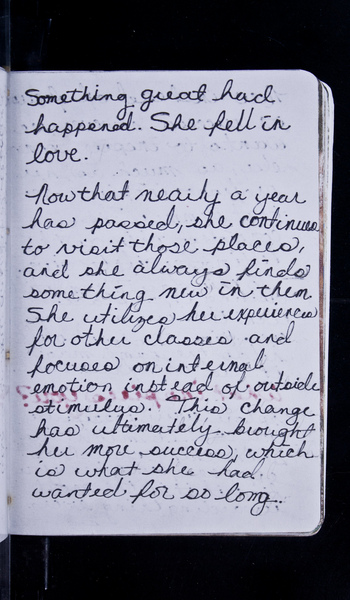 Something great had
happened. She fell in
love.
Now that nearly a year
has passed, she continues
to visit those places,
and she always finds
something new in them
She utilizes her experiences
for other classes and
focuses on internal
emotion instead of outside
stimulus. This change
has ultimately brought
her more success, which
is what she had
wanted for so long.